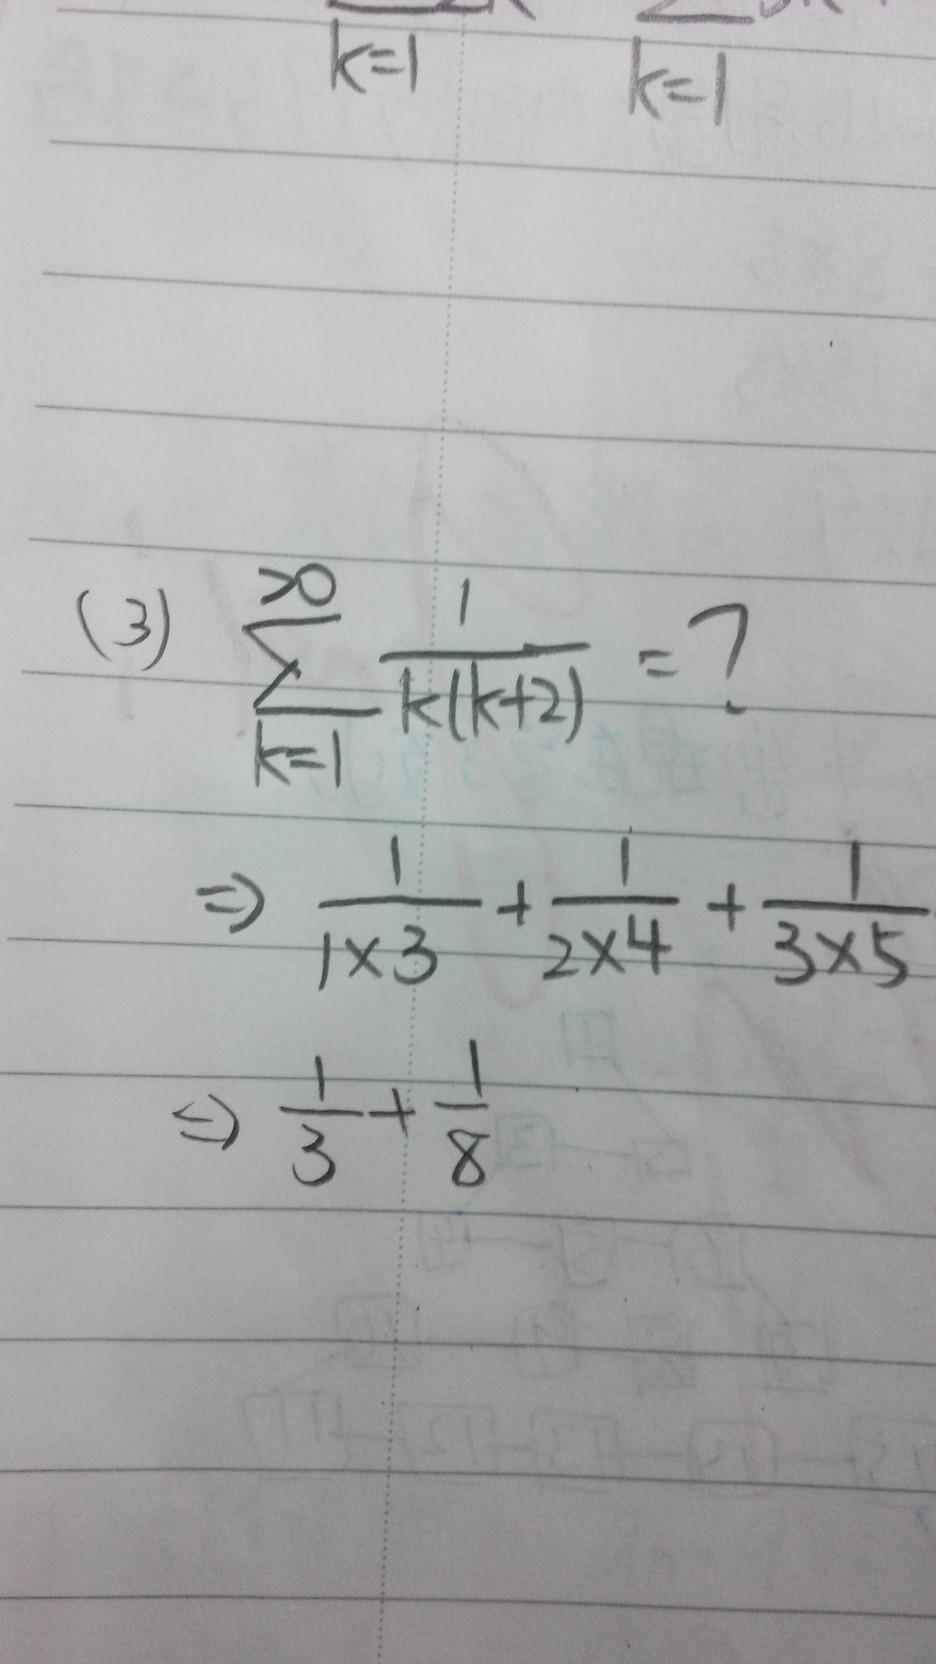 k=1 k=1
(3) 20
∑ 1/k(k+2) = ?
k=1
⇒ 1/1×3 + 1/2×4 + 1/3×5
⇒ 1/3 + 1/8